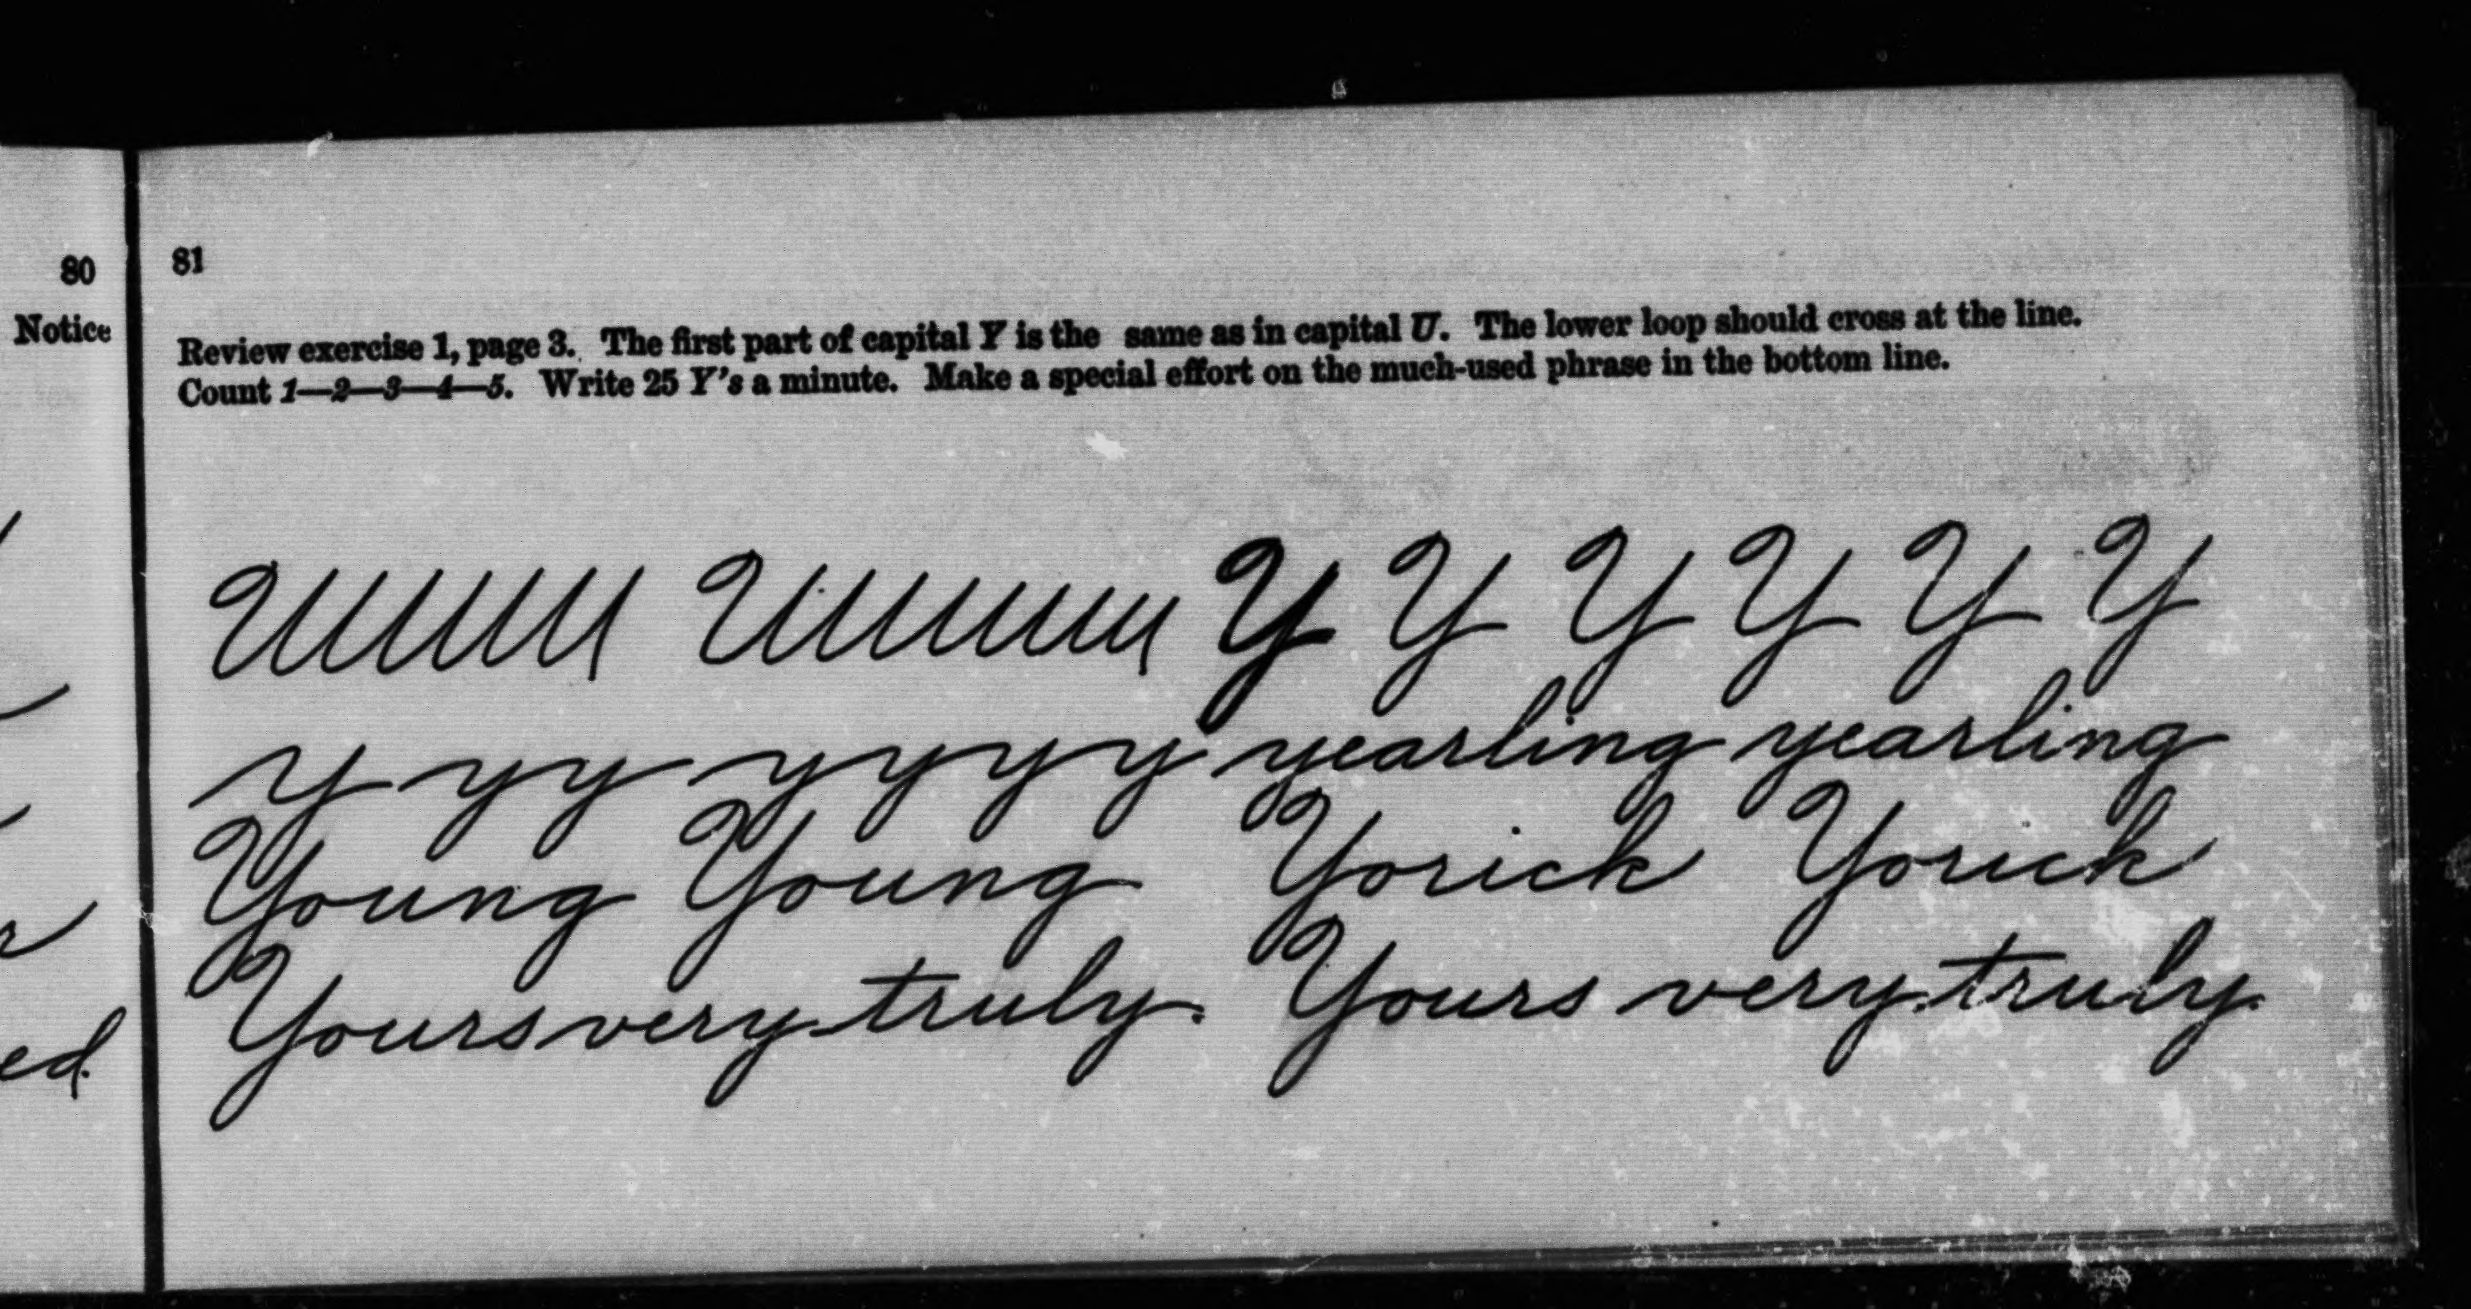 80
Notice
ed
81
Review exercise 1, page 3. The first part of capital Y is the same as in capital U. The lower loop should cross at the line.
Count 1—2—3—4—5. Write 25 Y's a minute. Make a special effort on the much-used phrase in the bottom line.
Y Y Y Y Y Y
y y y y y y y yearling yearling
Young Young Yorick Yorick
Yours very truly. Yours very truly.